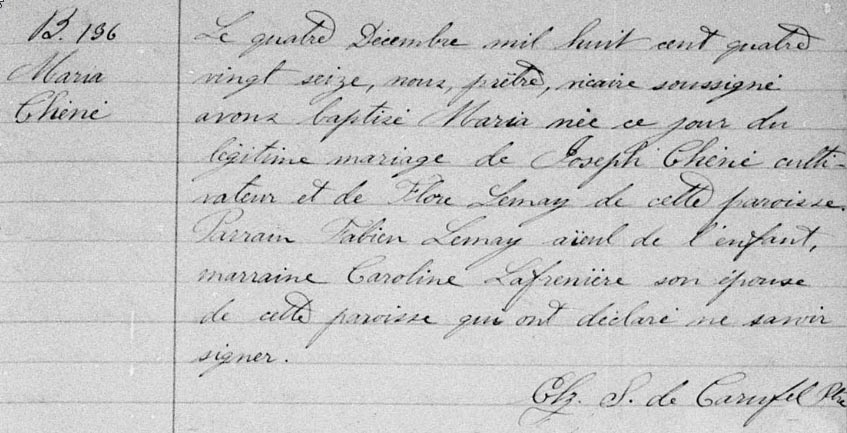 B. 136
Maria
Chéné
Le quatre Décembre mil huit cent quatre
vingt seize, nous, prêtre, vicaire soussigné
avons baptisé Maria née ce jour du
légitime mariage de Joseph Chéné culti-
vateur et de Flore Lemay de cette paroisse.
Parrain Fabien Lemay aïeul de l'enfant,
marraine Caroline Lafrenière son épouse
de cette paroisse qui ont déclaré ne savoir
signer.
S. de Carufel Ptre